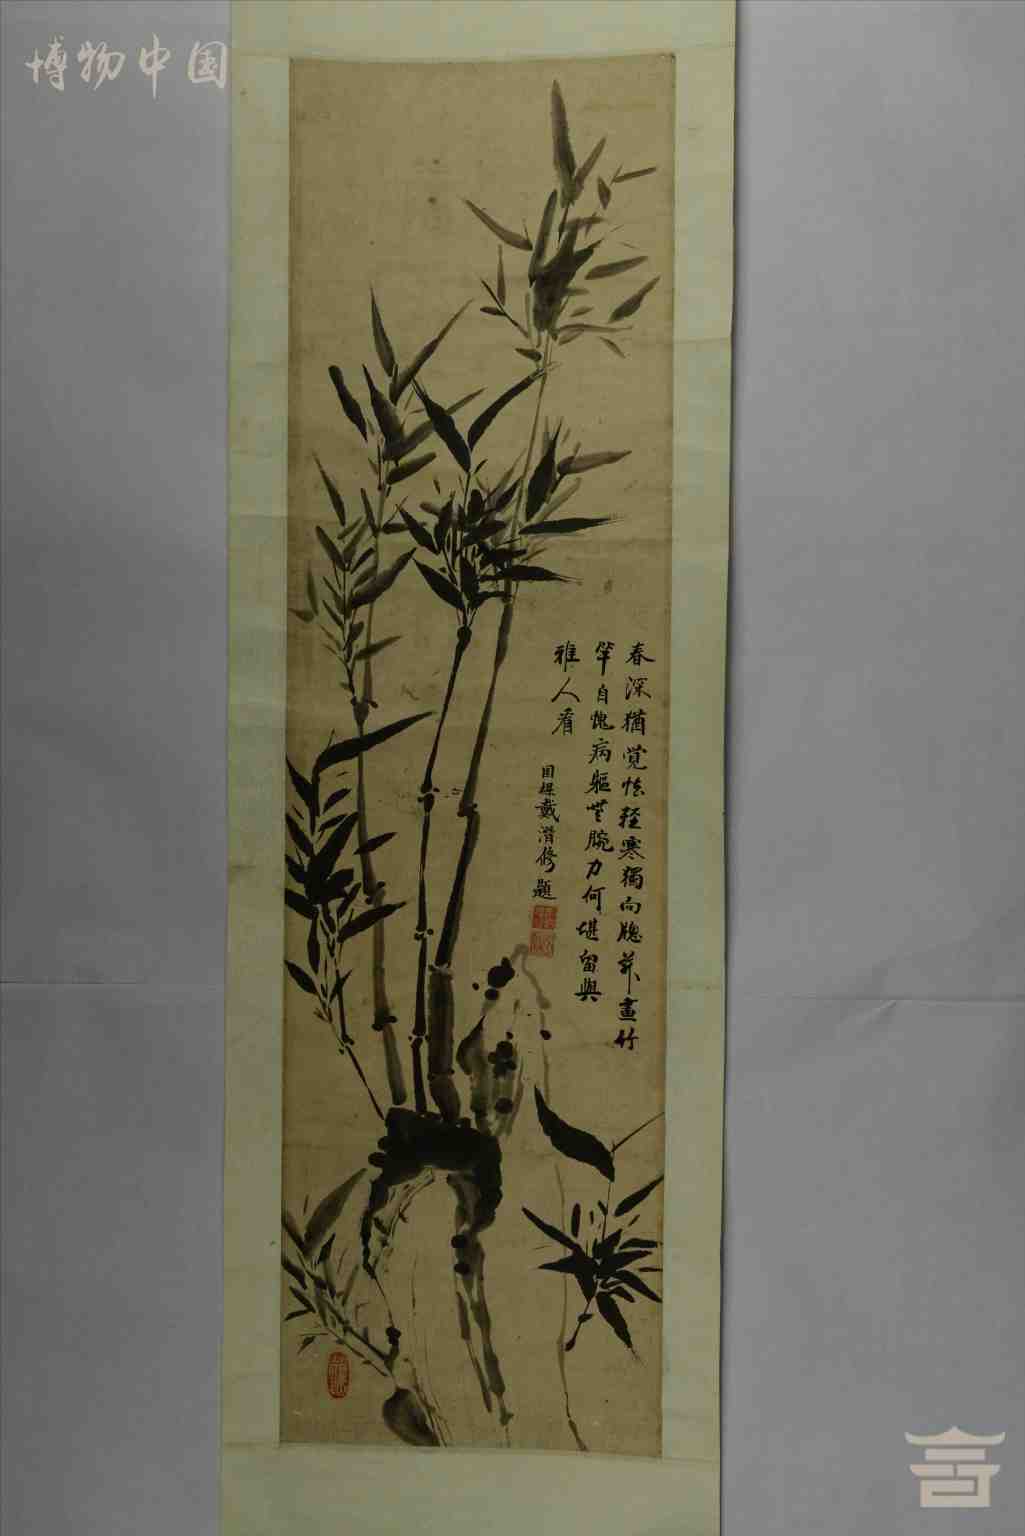 博物中国
春深猶覺怯輕寒獨向牕前畫竹
竿自愧病軀無腕力何堪留與
雅人看
戴潛修題